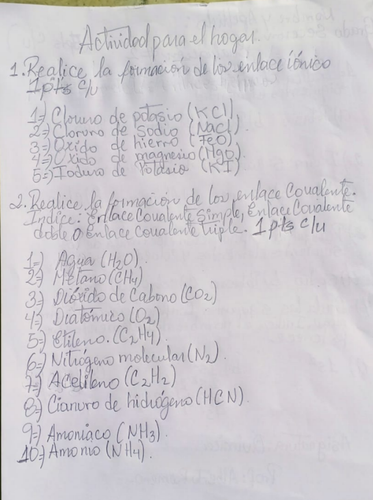 Actividad para el hogar.
1. Realice la formación de los enlace iónico
1pts c/u
1=) Cloruro de potasio (KCl)
2=) Cloruro de Sodio (NaCl)
3=) Oxido de hierro (FeO)
4=) Oxido de magnesio (MgO)
5=) Ioduro de Potasio (KI)
2. Realice la formación de los enlace Covalente.
Indice: Enlace Covalente Simple, Enlace Covalente
doble o Enlace Covalente triple. 1pts c/u
1=) Agua (H2O).
2=) Metano (CH4)
3=) Dióxido de Cabono (CO2)
4=) Diatómico (O2)
5=) Etileno. (C2H4).
6=) Nitrógeno molecular (N2).
7=) Acetileno (C2H2)
8=) Cianuro de hidrógeno (HCN).
9=) Amoniaco (NH3).
10=) Amonio (NH4).